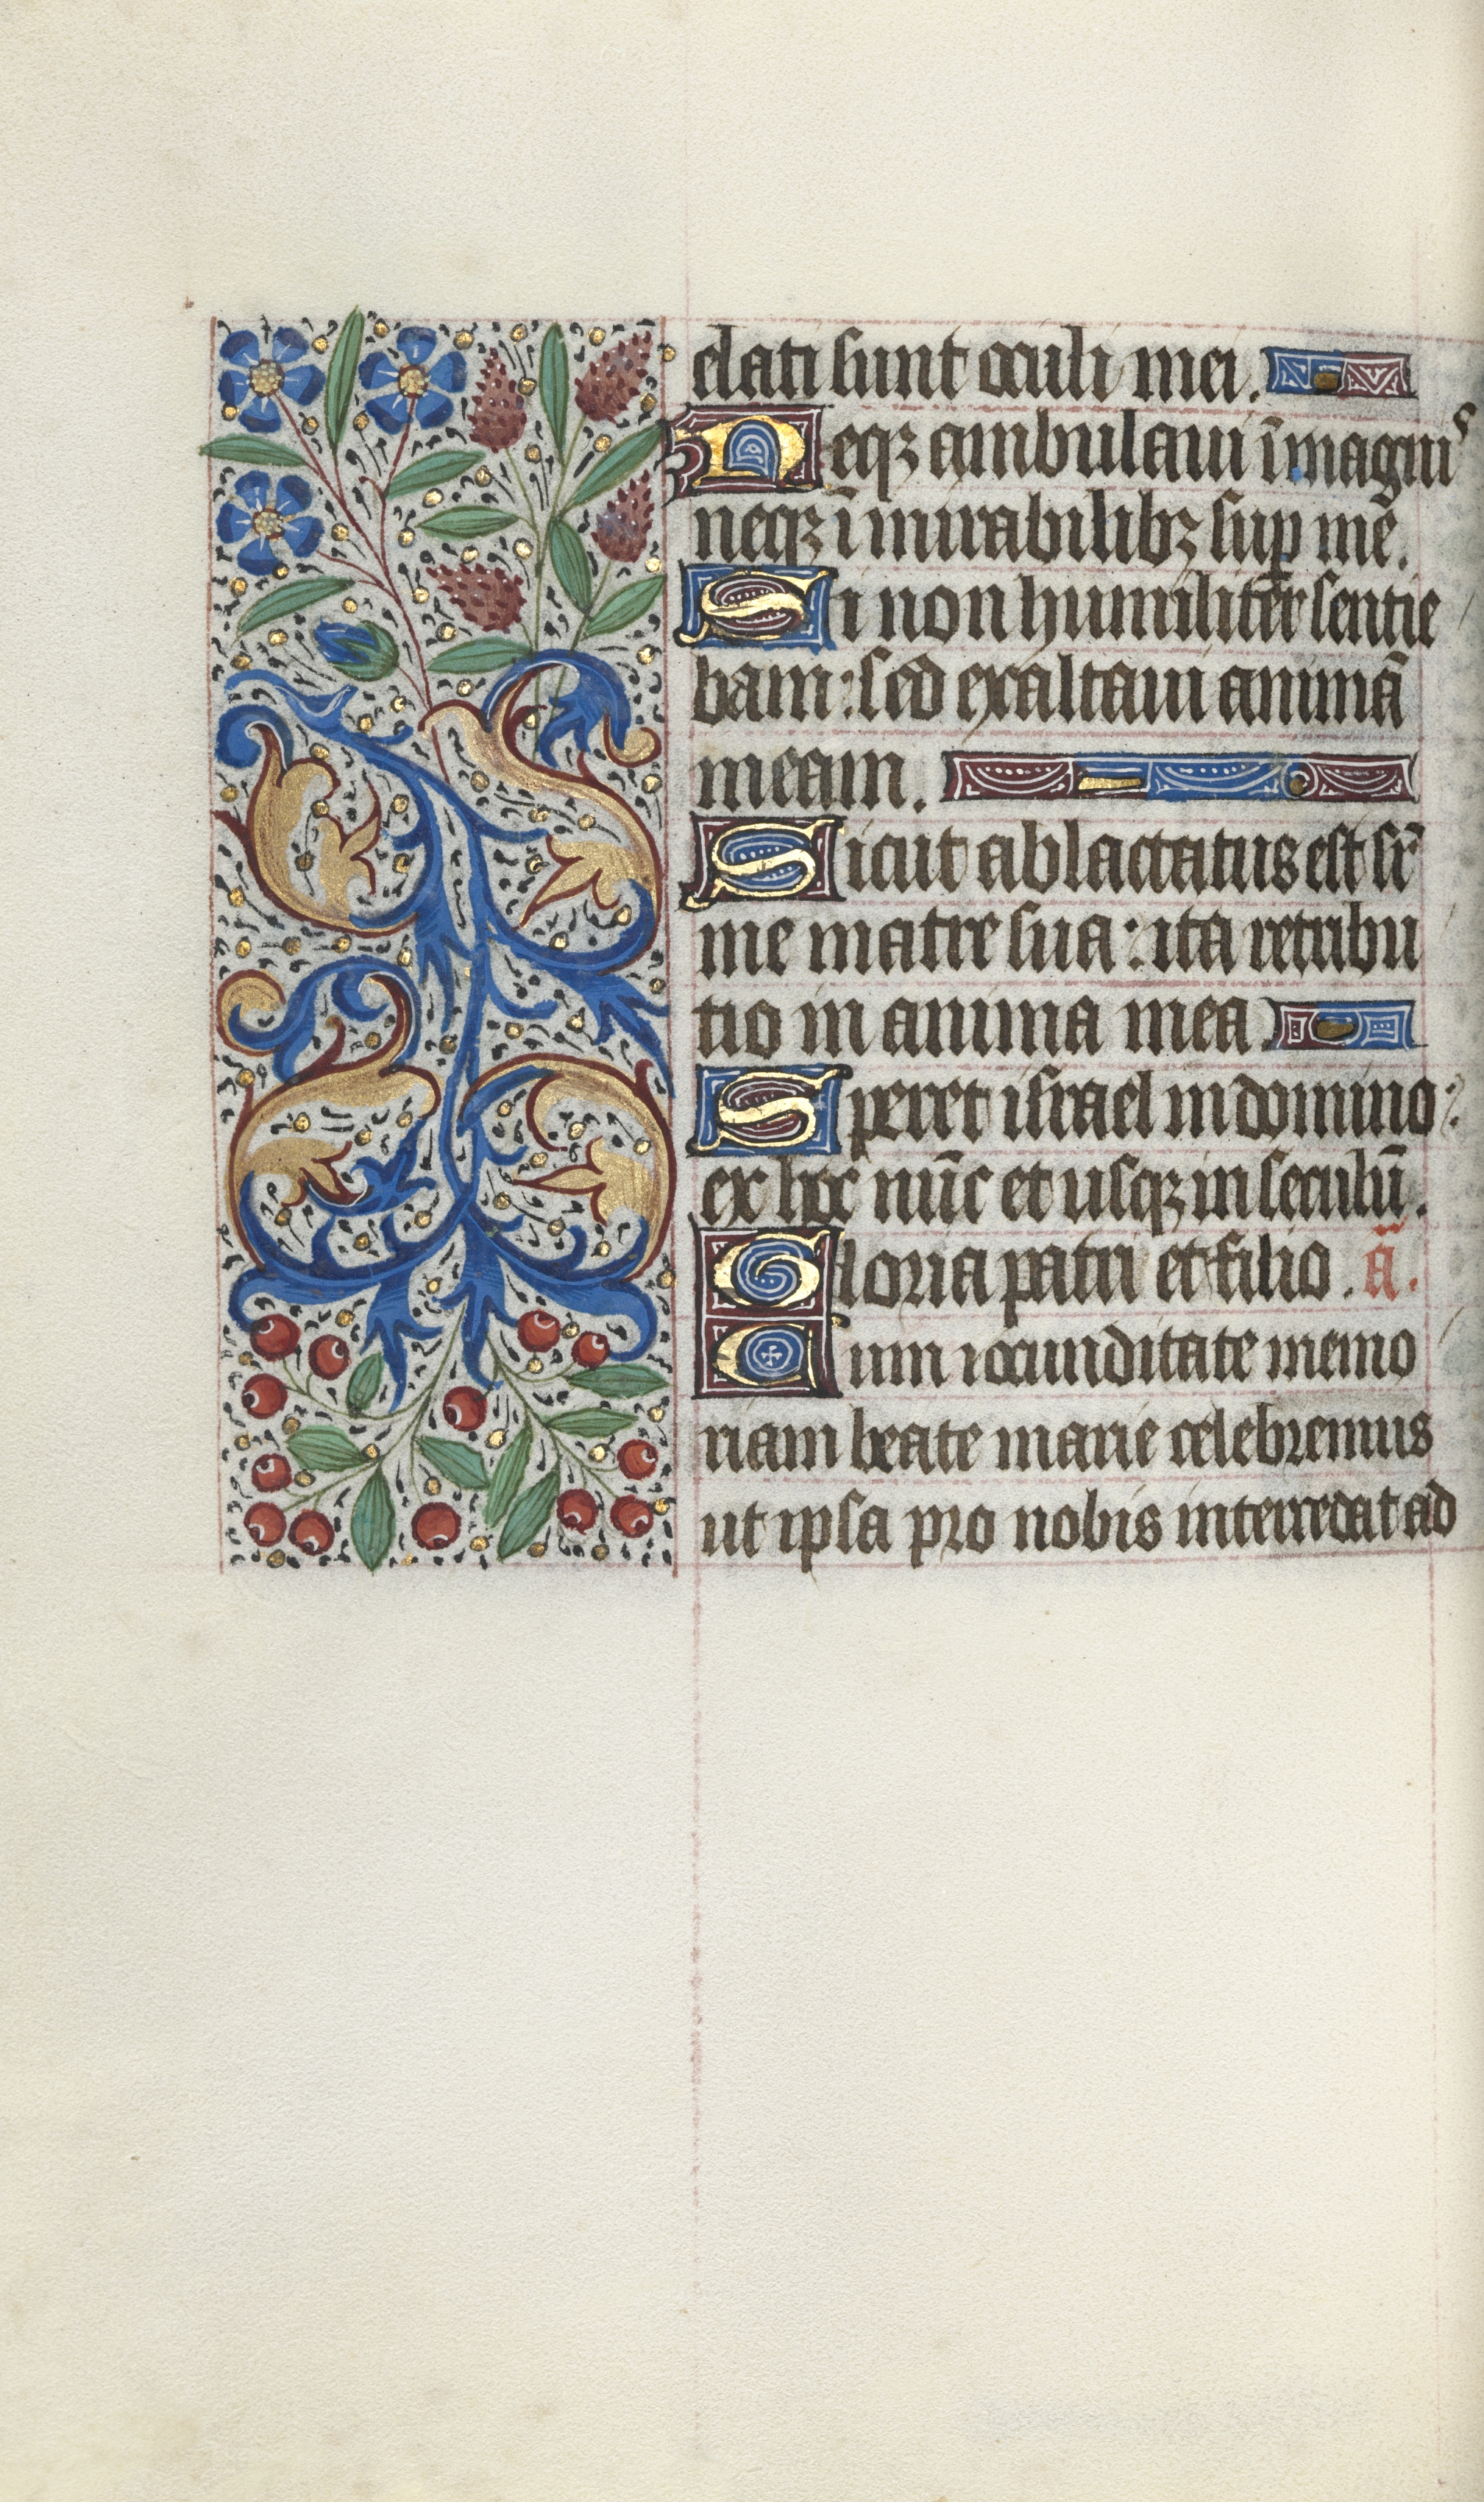 elati sunt oculi mei.
Neqꝫ ambulaui ī magnis
neqꝫ ī mirabilibꝫ suꝑ mē.
Si non humilit̄er sentie
bam: sed exaltaui animā
meam.
Sicut ablactatus est sr̄
me matre sua: ita retribu
tio in anima mea
Speret israel in domino:
ex hoc nūc et usqꝫ in seculū.
Gloria patri et filio. ā.
Cum iocunditate memo
riam beate marie celebremus
ut ipsa pro nobis intercedat ad